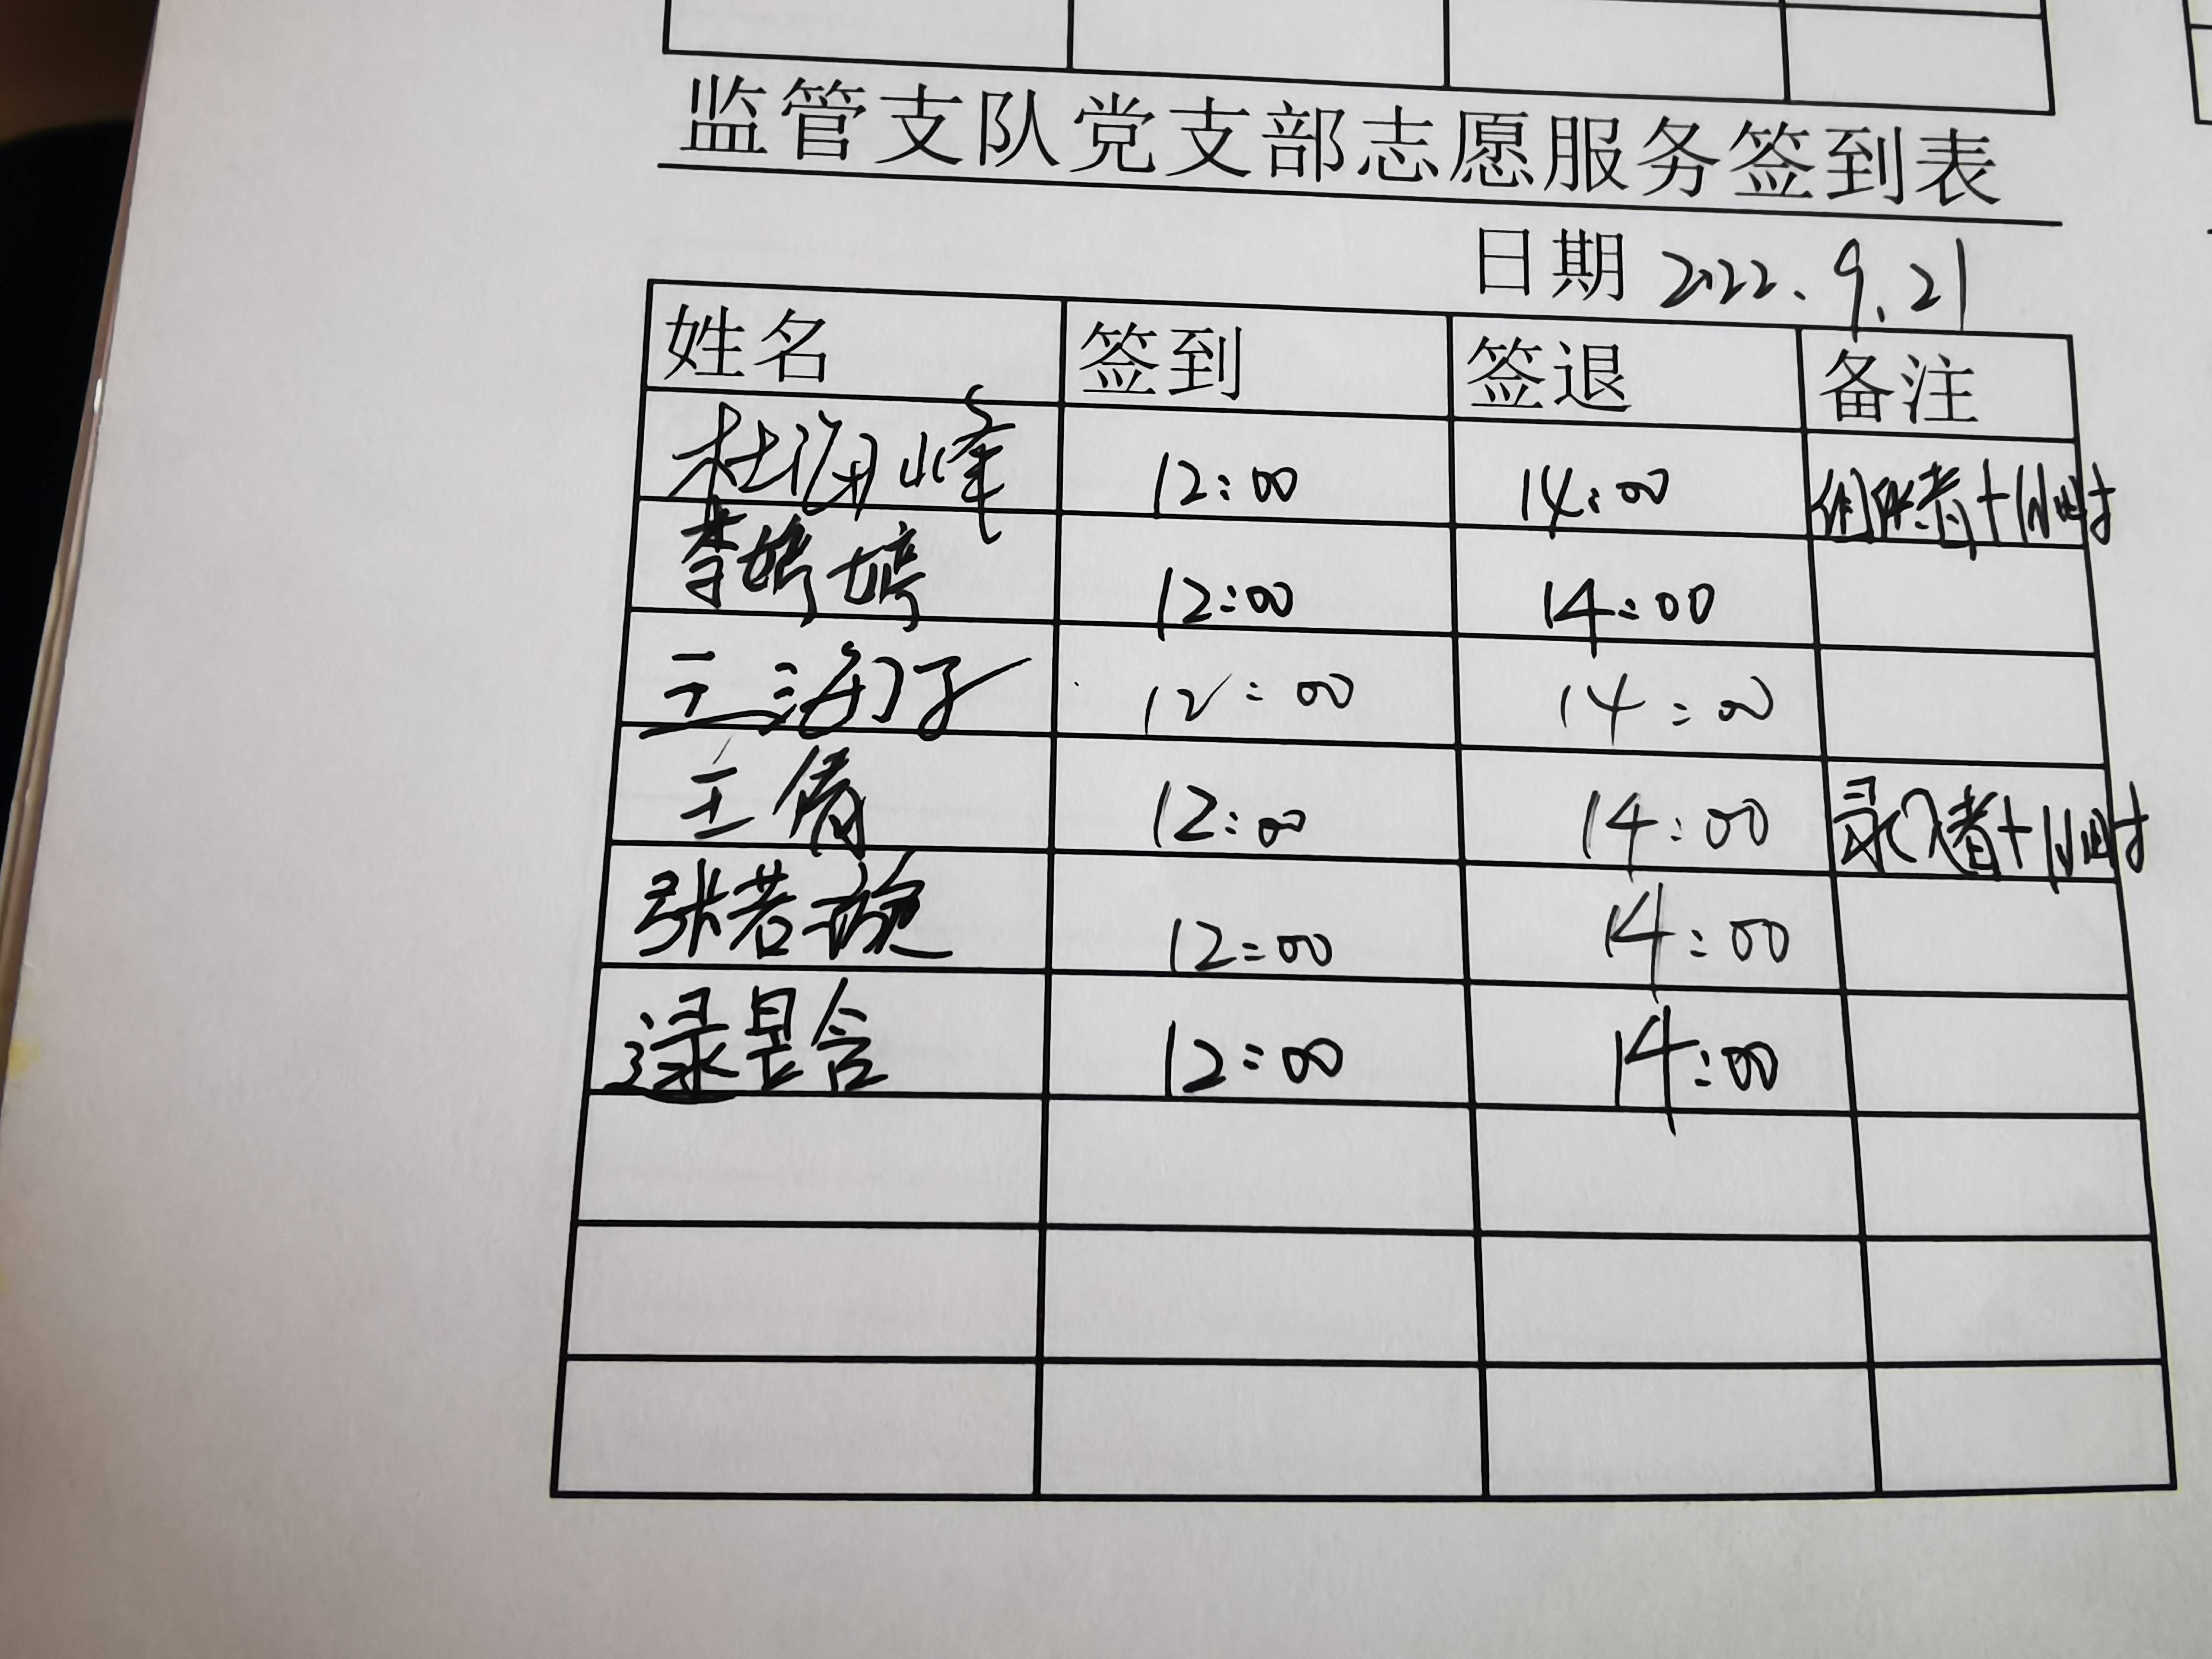 监管支队党支部志愿服务签到表
日期 2022.9.21
姓名 签到 签退 备注
杜海峰 12:00 14:00 组织者+1小时
李婷婷 12:00 14:00
12:00 14:00
王倩 12:00 14:00 录入者+1小时
张若旋 12:00 14:00
逯昱含 12:00 14:00